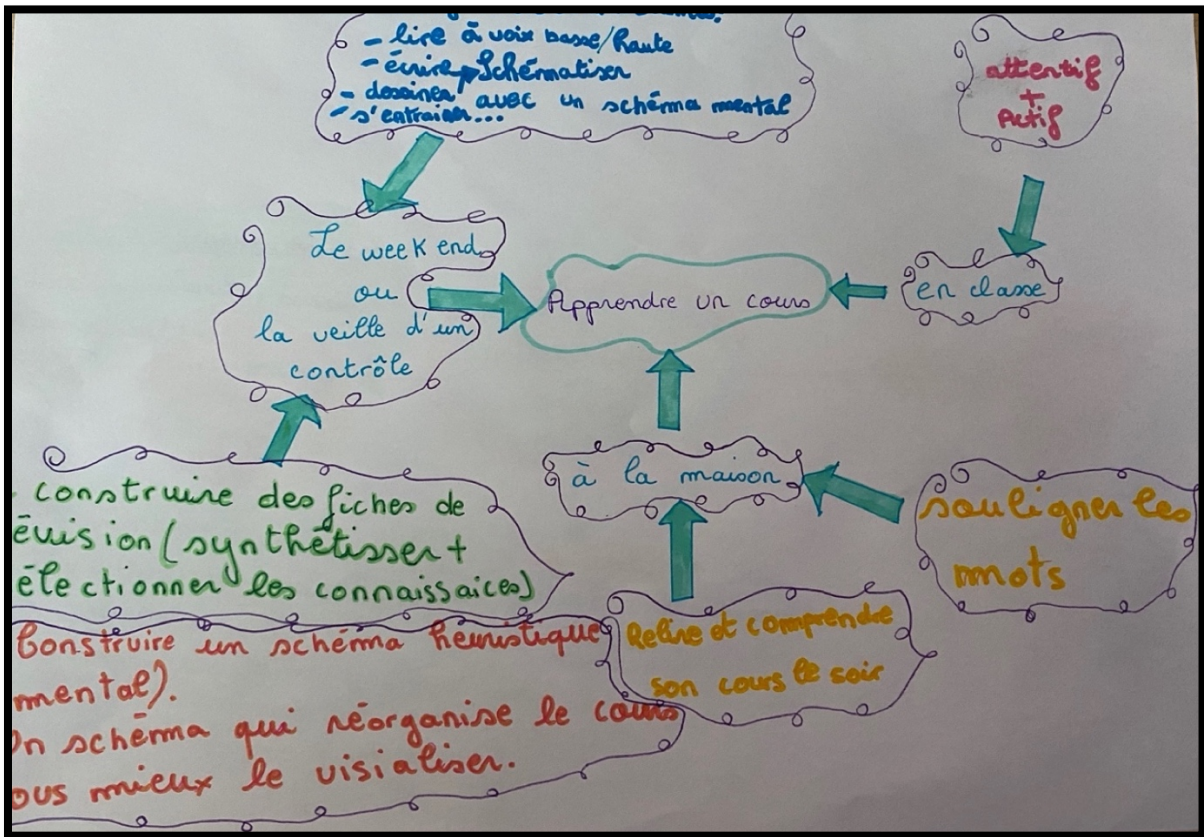 - lire à voix basse/haute
- écrire, Schématiser
- dessiner avec un schéma mental
- s'entrainer...
attentif
+
Actif
Le week end
ou
la veille d'un
contrôle
Apprendre un cours
en classe
à la maison
construire des fiches de
évision (synthétisser +
électionner les connaissaices)
souligner les
mots
Construire un schéma heuristique
mental).
n schéma qui réorganise le cours
ous mieux le visialiser.
Relire et comprendre
son cours le soir